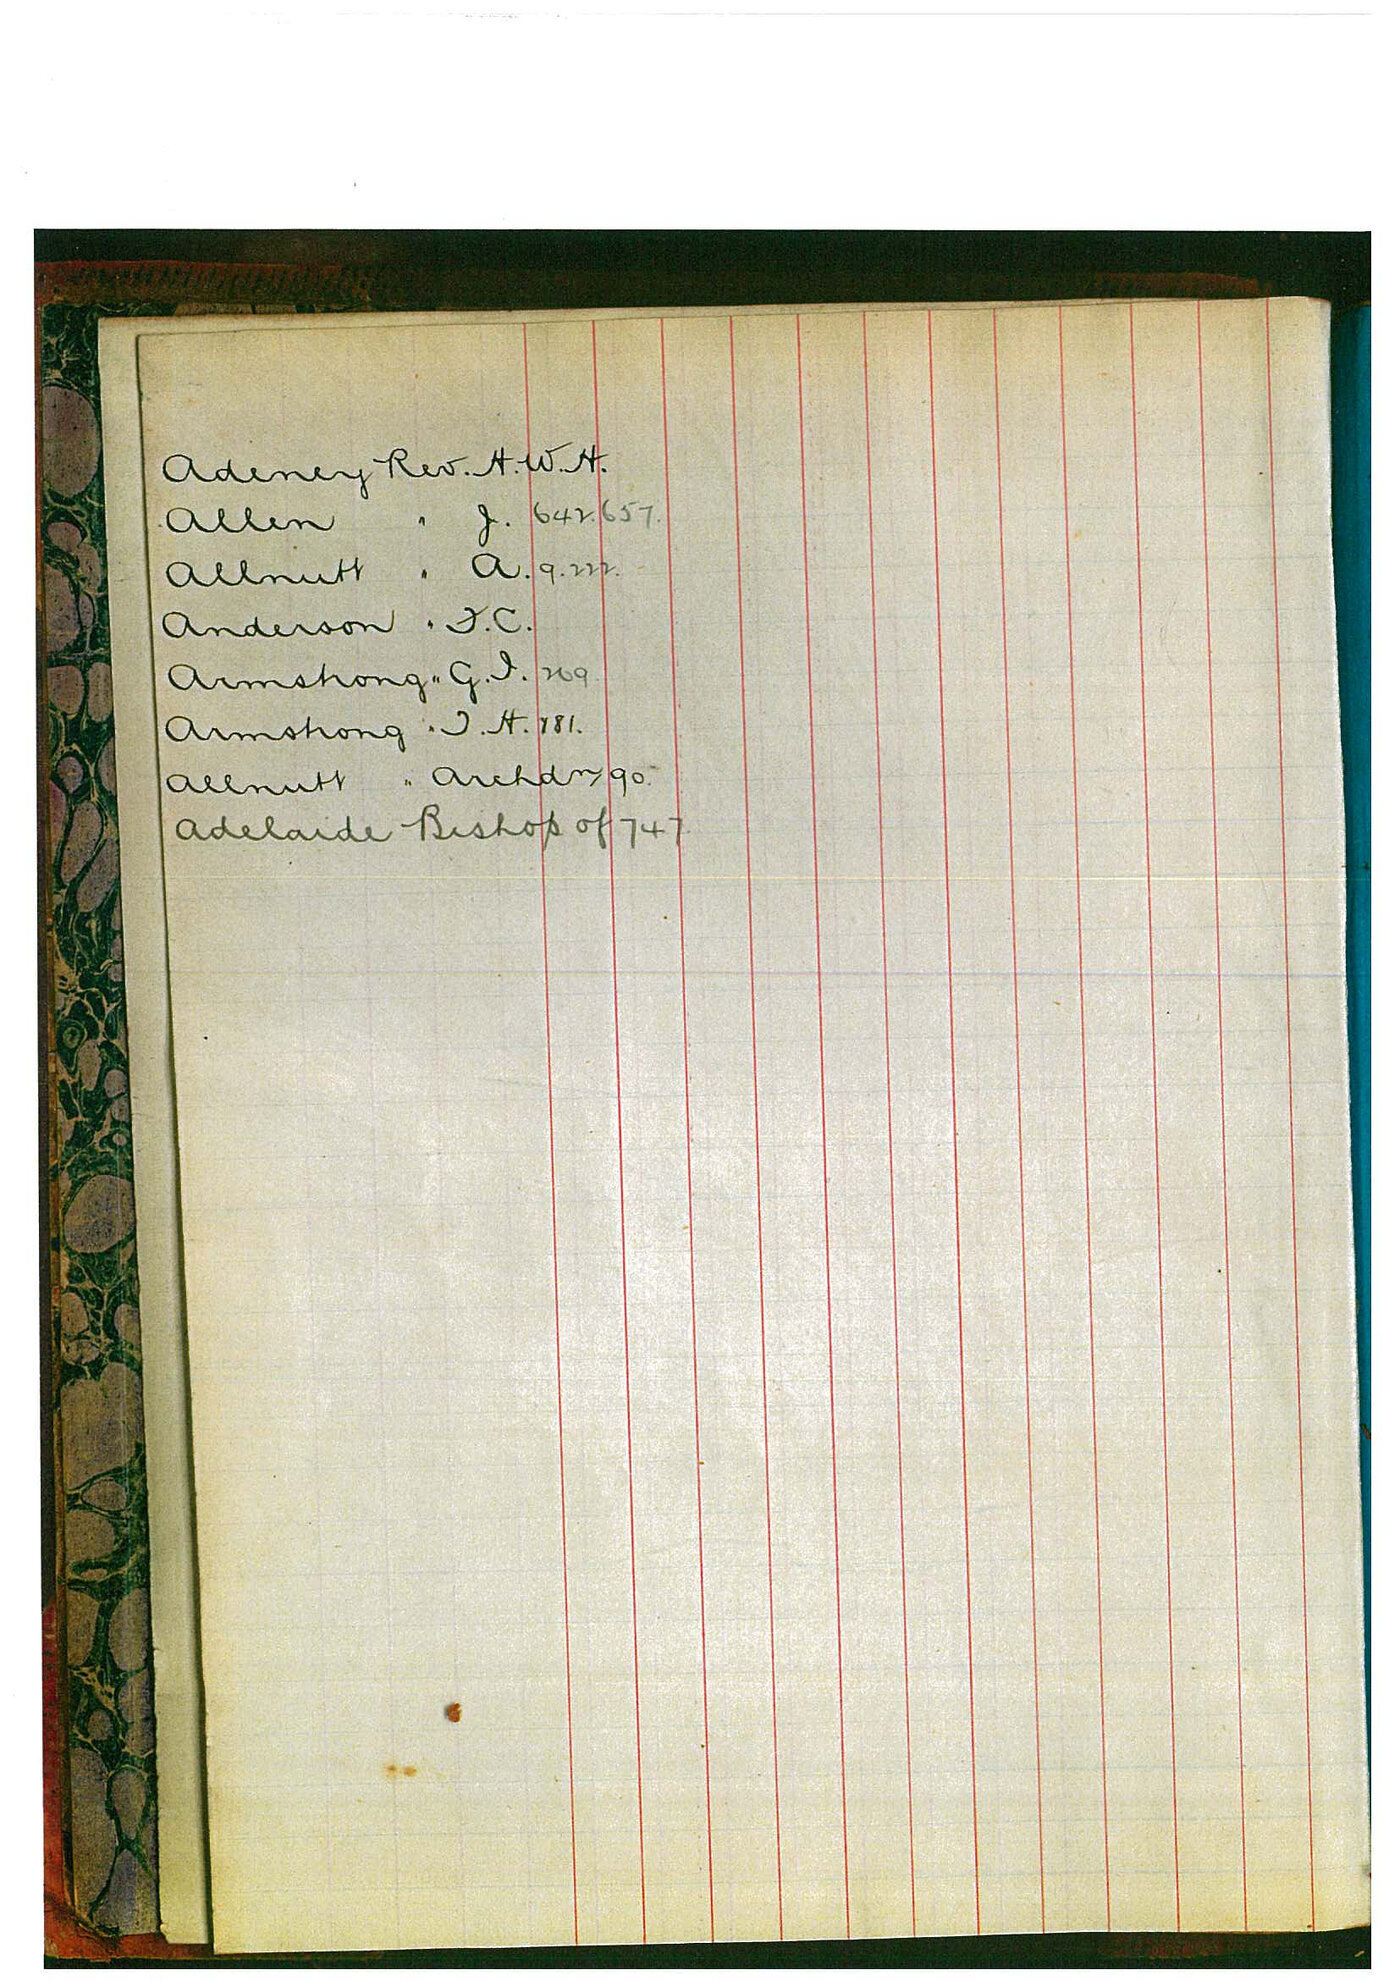 Adeney Rev. H. W. H.
Allen " J. 642. 657.
Allnutt " A. 9. 222.
Anderson " F. C.
Armstrong " G. I. 269
Armstrong " T. H. 181.
Allnutt " Archdn 90.
Adelaide Bishop of 747